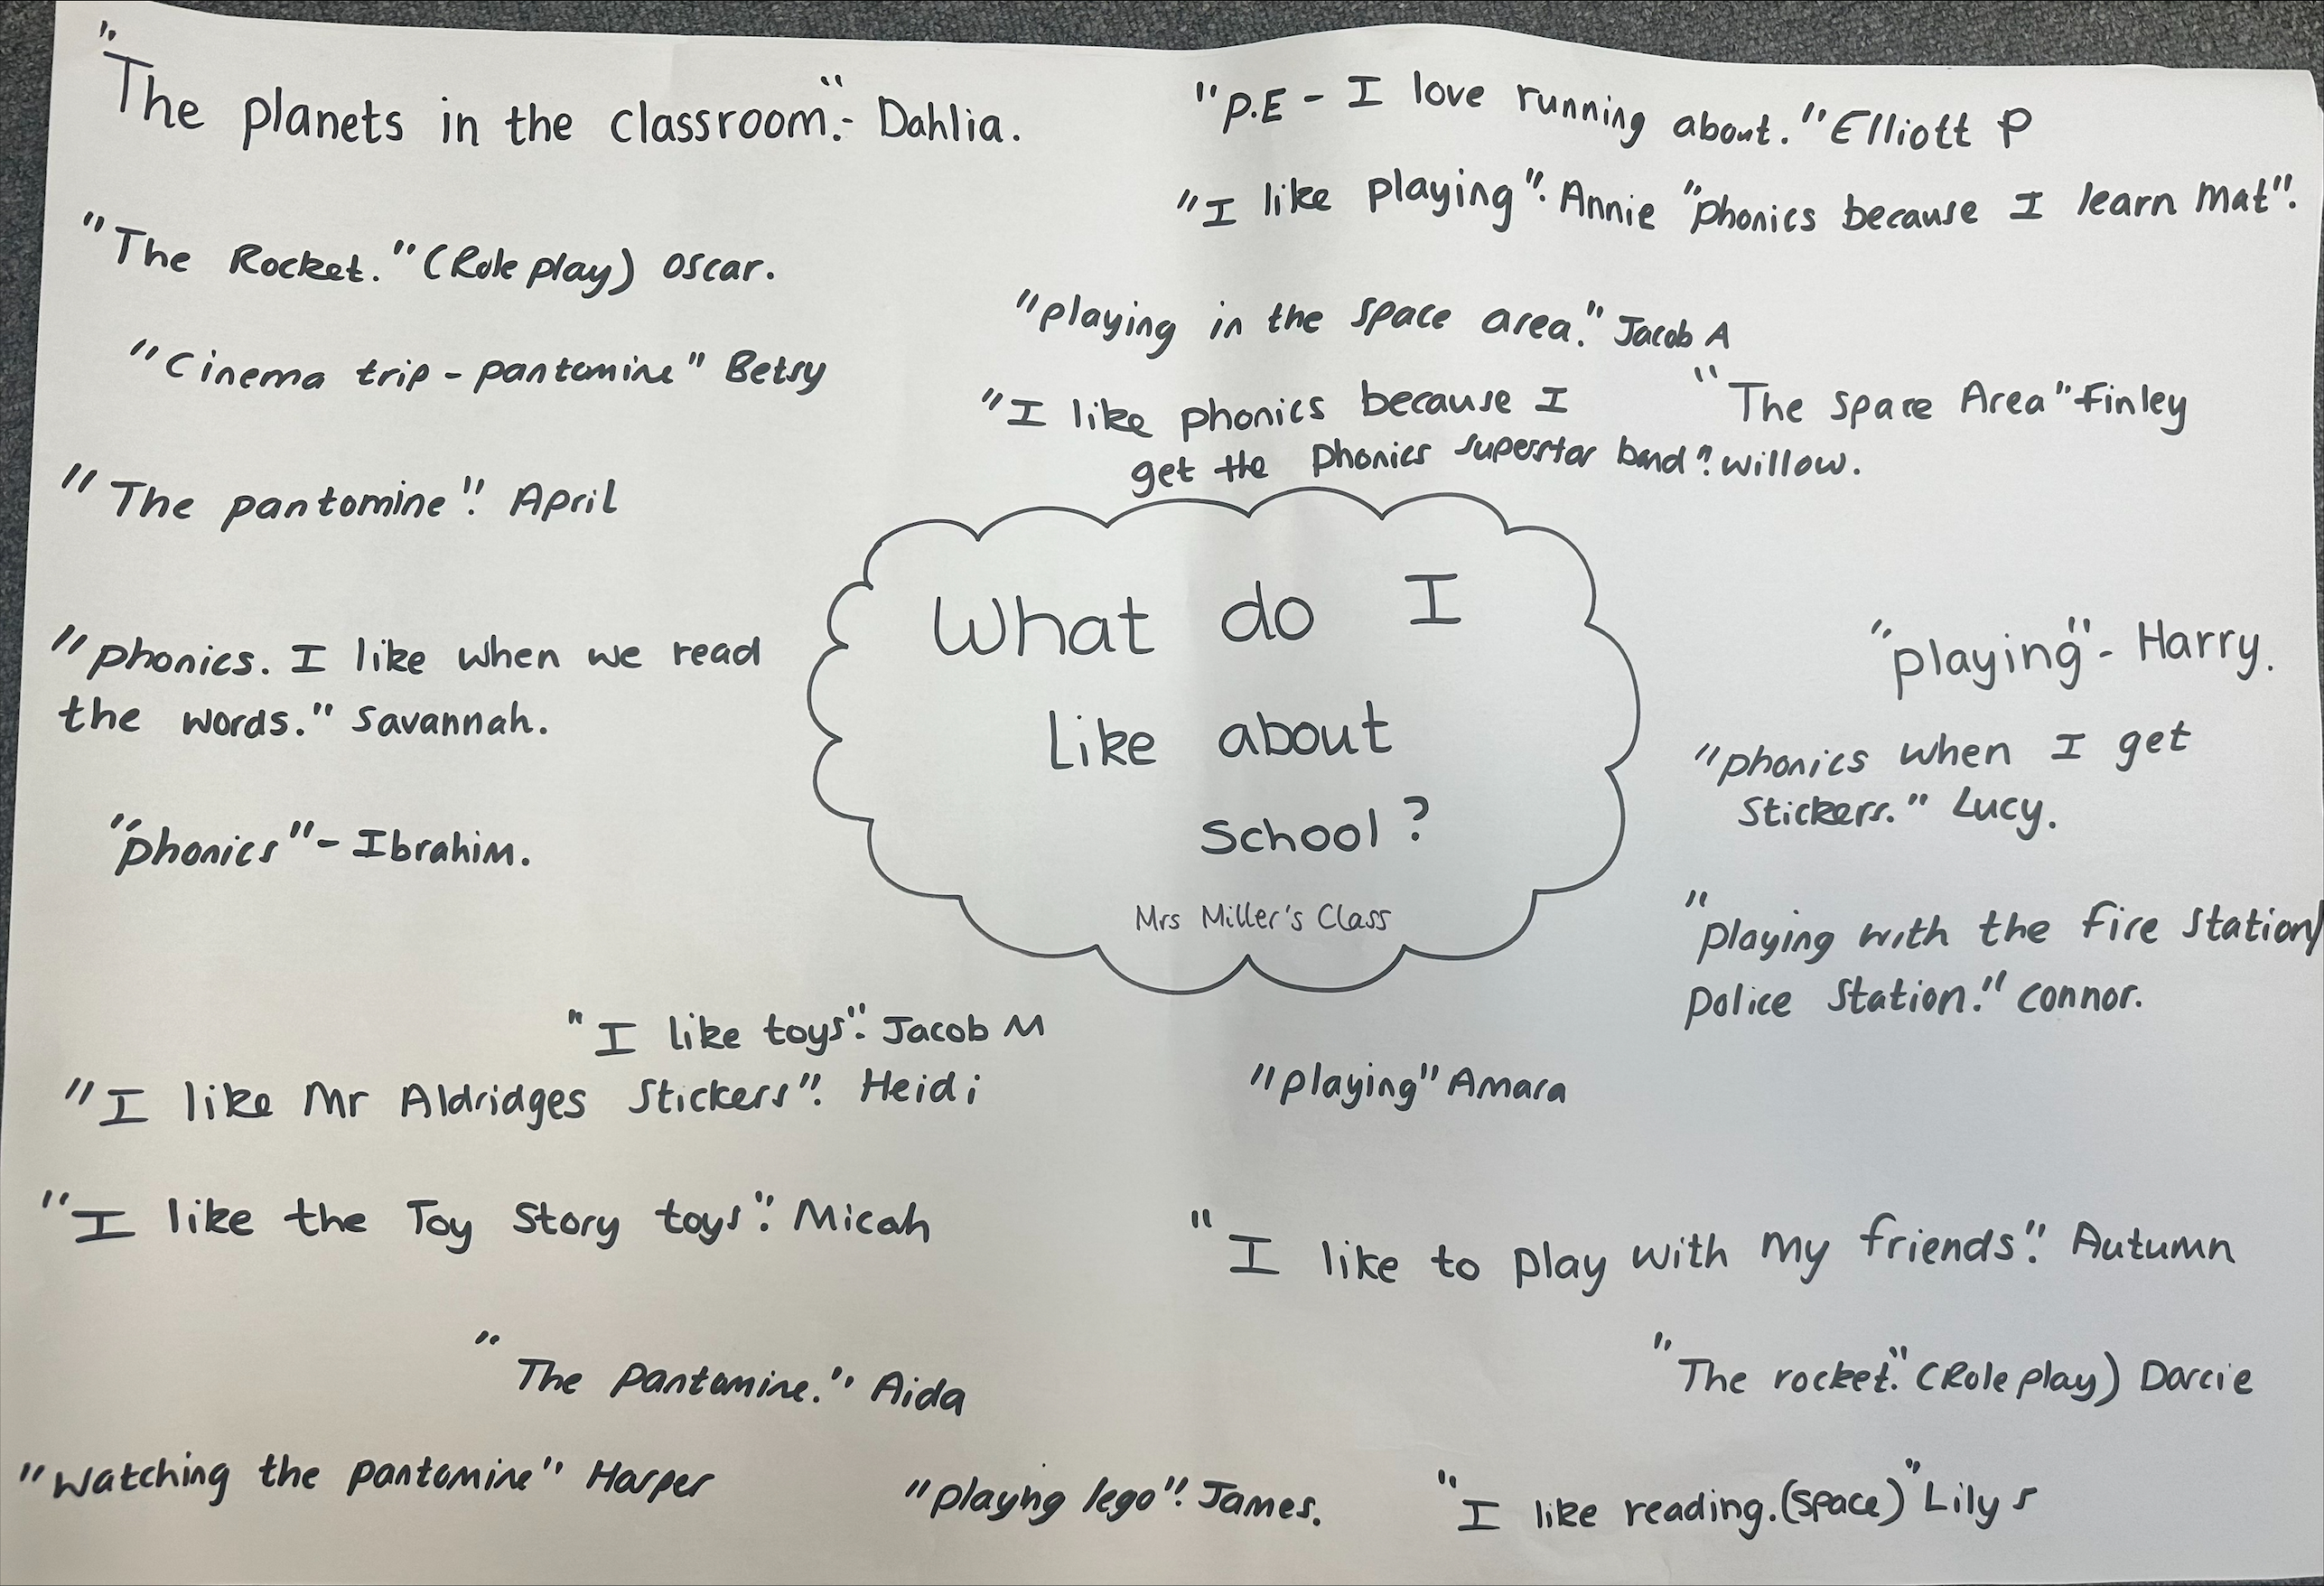 "The planets in the classroom." - Dahlia.
"The Rocket." (Role play) Oscar.
"Cinema trip - pantomine" Betsy
"The pantomine". April
"phonics. I like when we read
the words." Savannah.
"phonics" - Ibrahim.
"P.E - I love running about." Elliott P
"I like playing". Annie "phonics because I learn mat".
"playing in the space area." Jacob A
"I like phonics because I
get the phonics superstar band". willow.
"The space Area" Finley
What do I
like about
school?
Mrs Miller's Class
"playing" - Harry.
"phonics when I get
stickers." Lucy.
"playing with the fire station/
police station." connor.
"I like toys". Jacob M
"I like Mr Aldridges stickers". Heidi
"playing" Amara
"I like the Toy Story toys". Micah
"I like to play with my friends". Autumn
"The pantomine." Aida
"The rocket". (Role play) Darcie
"watching the pantomine" Harper
"playing lego". James.
"I like reading. (space)" Lily S